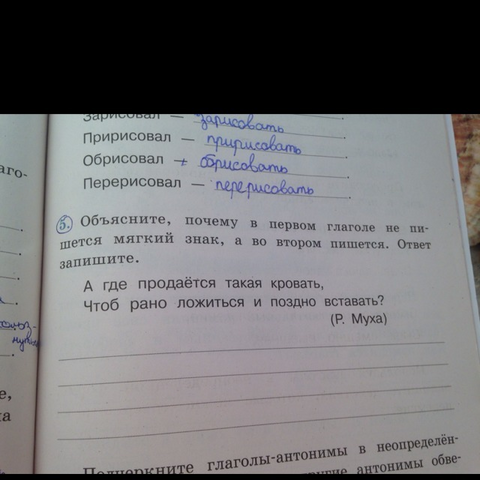 Зарисовал — зарисовать
Пририсовал — пририсовать
Обрисовал — обрисовать
Перерисовал — перерисовать
5. Объясните, почему в первом глаголе не пи-
шется мягкий знак, а во втором пишется. Ответ
запишите.
А где продаётся такая кровать,
Чтоб рано ложиться и поздно вставать?
(Р. Муха)
Подчеркните глаголы-антонимы в неопределён-
другие антонимы обве-
аго-
е,